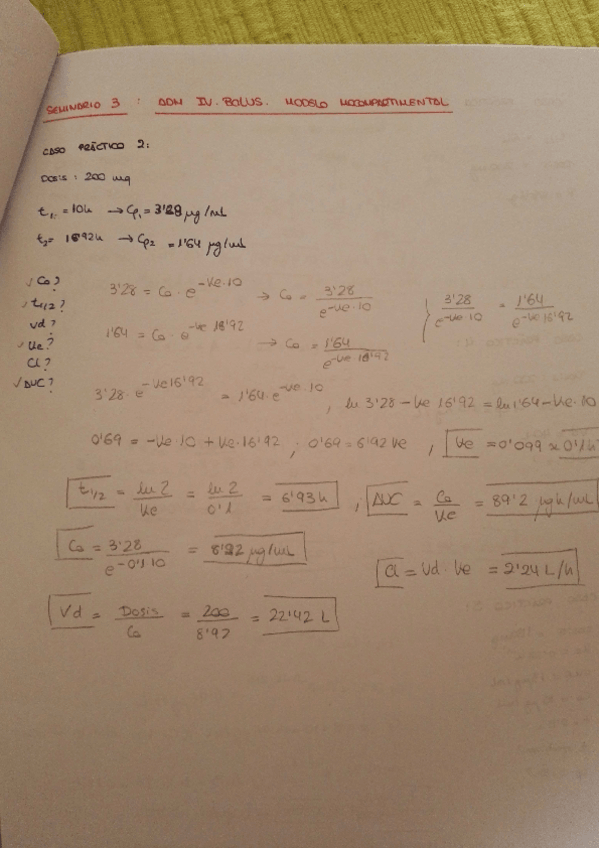 SEMINARIO 3 : ADM IV. BOLUS. MODELO MONOCOMPARTIMENTAL
CASO PRÁCTICO 2:
DOSIS: 200 mg
t₁ = 10h → Cp₁ = 3'28 μg/mL
t₂ = 16'92h → Cp₂ = 1'64 μg/mL
✓ Co?
✓ t1/2?
Vd?
✓ Ke?
Cl?
✓ AUC?
3'28 = Co · e^-Ke·10 → Co = 3'28 / e^-Ke·10 { 3'28 / e^-Ke 10 = 1'64 / e^-Ke 16'92
1'64 = Co · e^-Ke 16'92 → Co = 1'64 / e^-Ke 16'92
3'28 · e^-Ke 16'92 = 1'64 · e^-Ke·10 , ln 3'28 - Ke 16'92 = ln 1'64 - Ke·10
0'69 = -Ke·10 + Ke·16'92 ; 0'69 = 6'92 Ke , Ke = 0'099 ≈ 0'1 h
t1/2 = ln 2 / Ke = ln 2 / 0'1 = 6'93 h ; AUC = Co / Ke = 89'2 μg h/mL
Co = 3'28 / e^-0'1·10 = 8'92 μg/mL
Cl = Vd · Ke = 2'24 L/h
Vd = Dosis / Co = 200 / 8'92 = 22'42 L